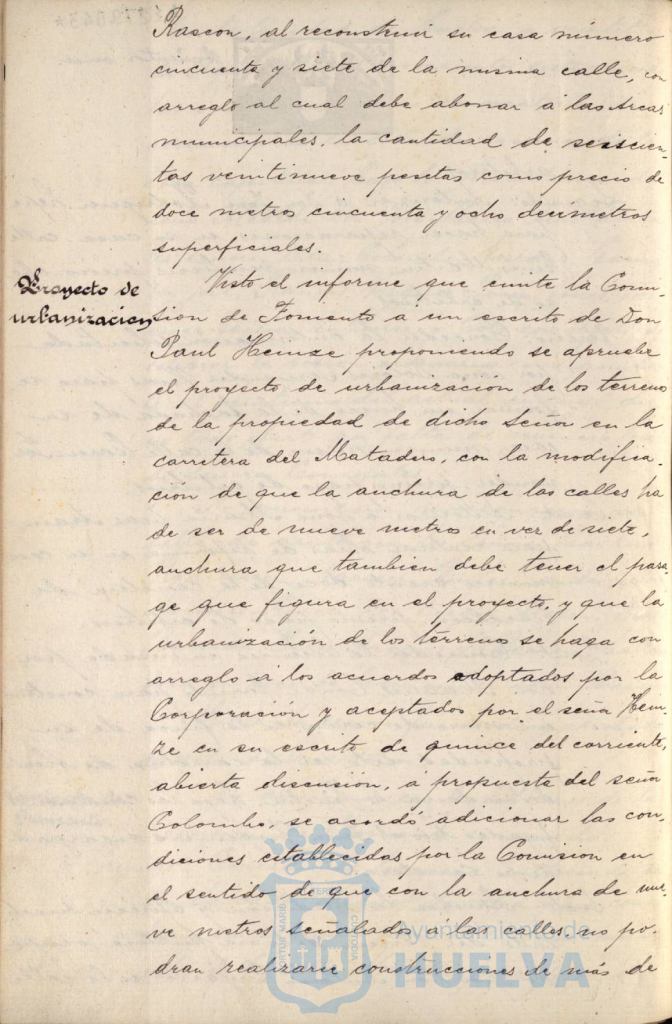 Rascon, al reconstruir su casa número
cincuenta y siete de la misma calle, con
arreglo al cual debe abonar á las Arcas
municipales, la cantidad de seiscien-
tas veintinueve pesetas como precio de
doce metros cincuenta y ocho decimetros
superficiales.
Proyecto de
urbanizacion
Visto el informe que emite la Comi-
sion de Fomento á un escrito de Don
Paul Heinze proponiendo se apruebe
el proyecto de urbanización de los terrenos
de la propiedad de dicho Señor en la
carretera del Matadero, con la modifica-
ción de que la anchura de las calles ha
de ser de nueve metros en vez de siete,
anchura que tambien debe tener el pasa
ge que figura en el proyecto, y que la
urbanización de los terrenos se haga con
arreglo á los acuerdos adoptados por la
Corporación y aceptados por el señor Hein-
ze en su escrito de quince del corriente,
abierta discusión, á propuesta del señor
Colombo, se acordó adicionar las con-
diciones establecidas por la Comision en
el sentido de que con la anchura de nue-
ve metros señalados á las calles, no po-
dran realizarse construcciones de más de
Ayuntamiento de
HUELVA